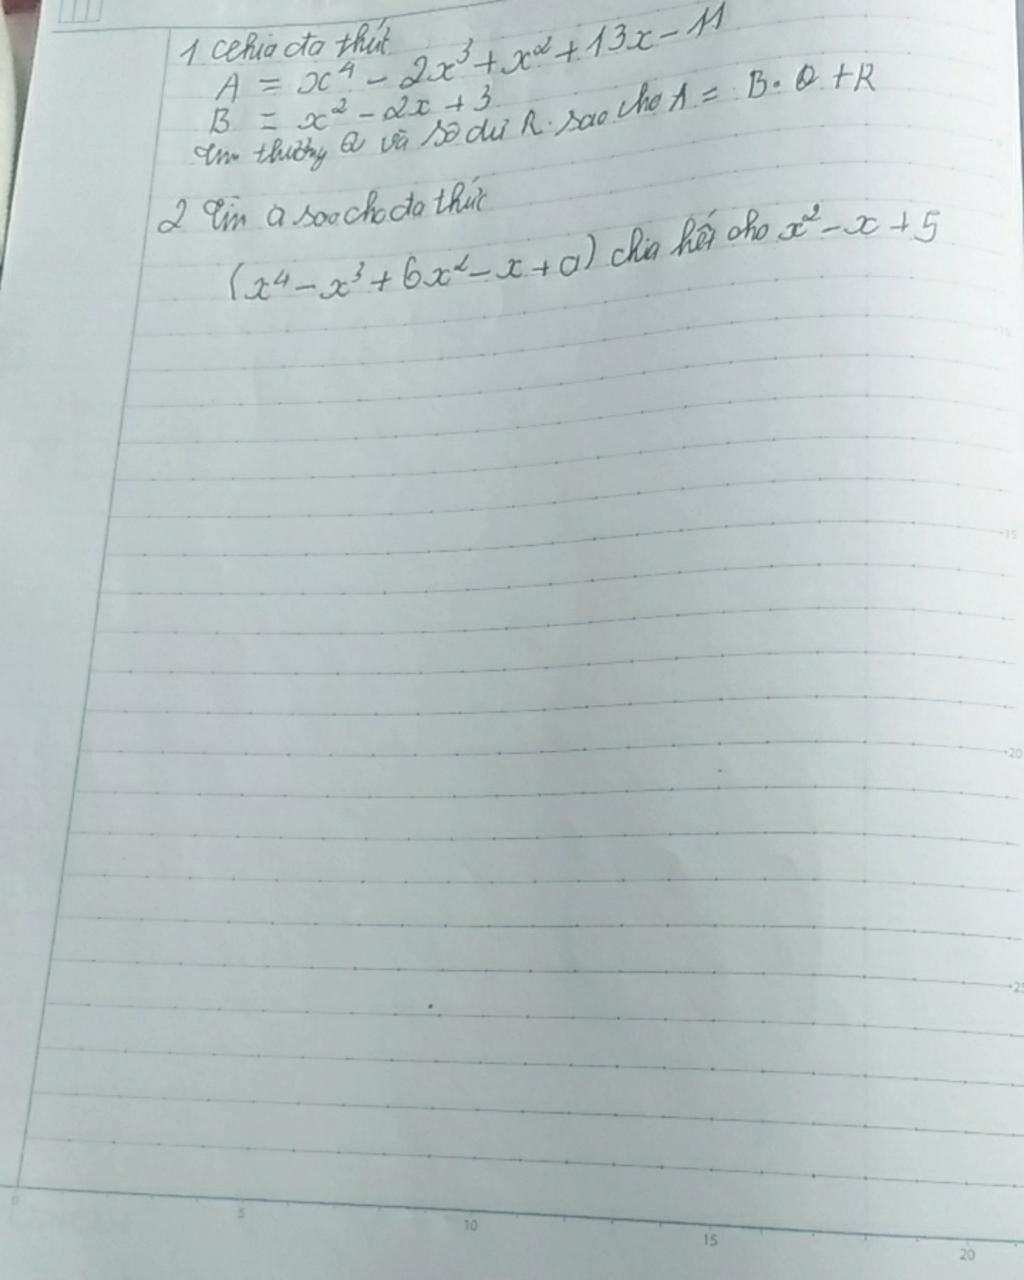 1 Chia đa thức
A = x⁴ - 2x³ + x² + 13x - 11
B = x² - 2x + 3
Tìm thương Q và số dư R sao cho A = B. Q + R
2 Tìm a sao cho đa thức
(x⁴ - x³ + 6x² - x + a) chia hết cho x² - x + 5
5
10
15
20
15
20
25